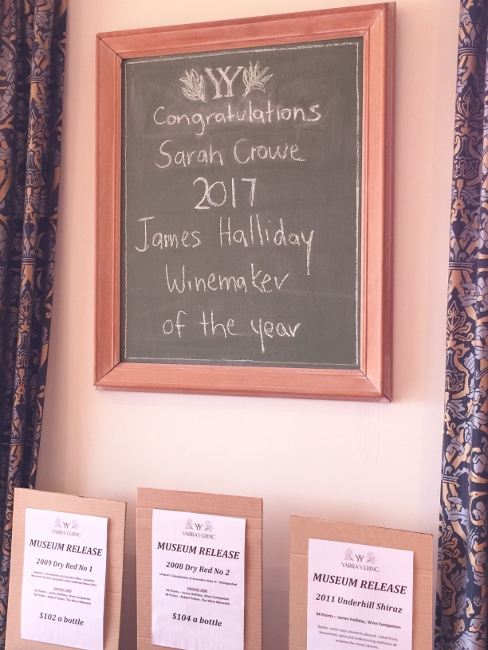 YY
Congratulations
Sarah Crowe
2017
James Halliday
Winemaker
of the year
YY
YARRA YERING
MUSEUM RELEASE
2009 Dry Red No 1
$102 a bottle
YY
YARRA YERING
MUSEUM RELEASE
2008 Dry Red No 2
$104 a bottle
YY
YARRA YERING
MUSEUM RELEASE
2011 Underhill Shiraz
94 Points – James Halliday, Wine Companion